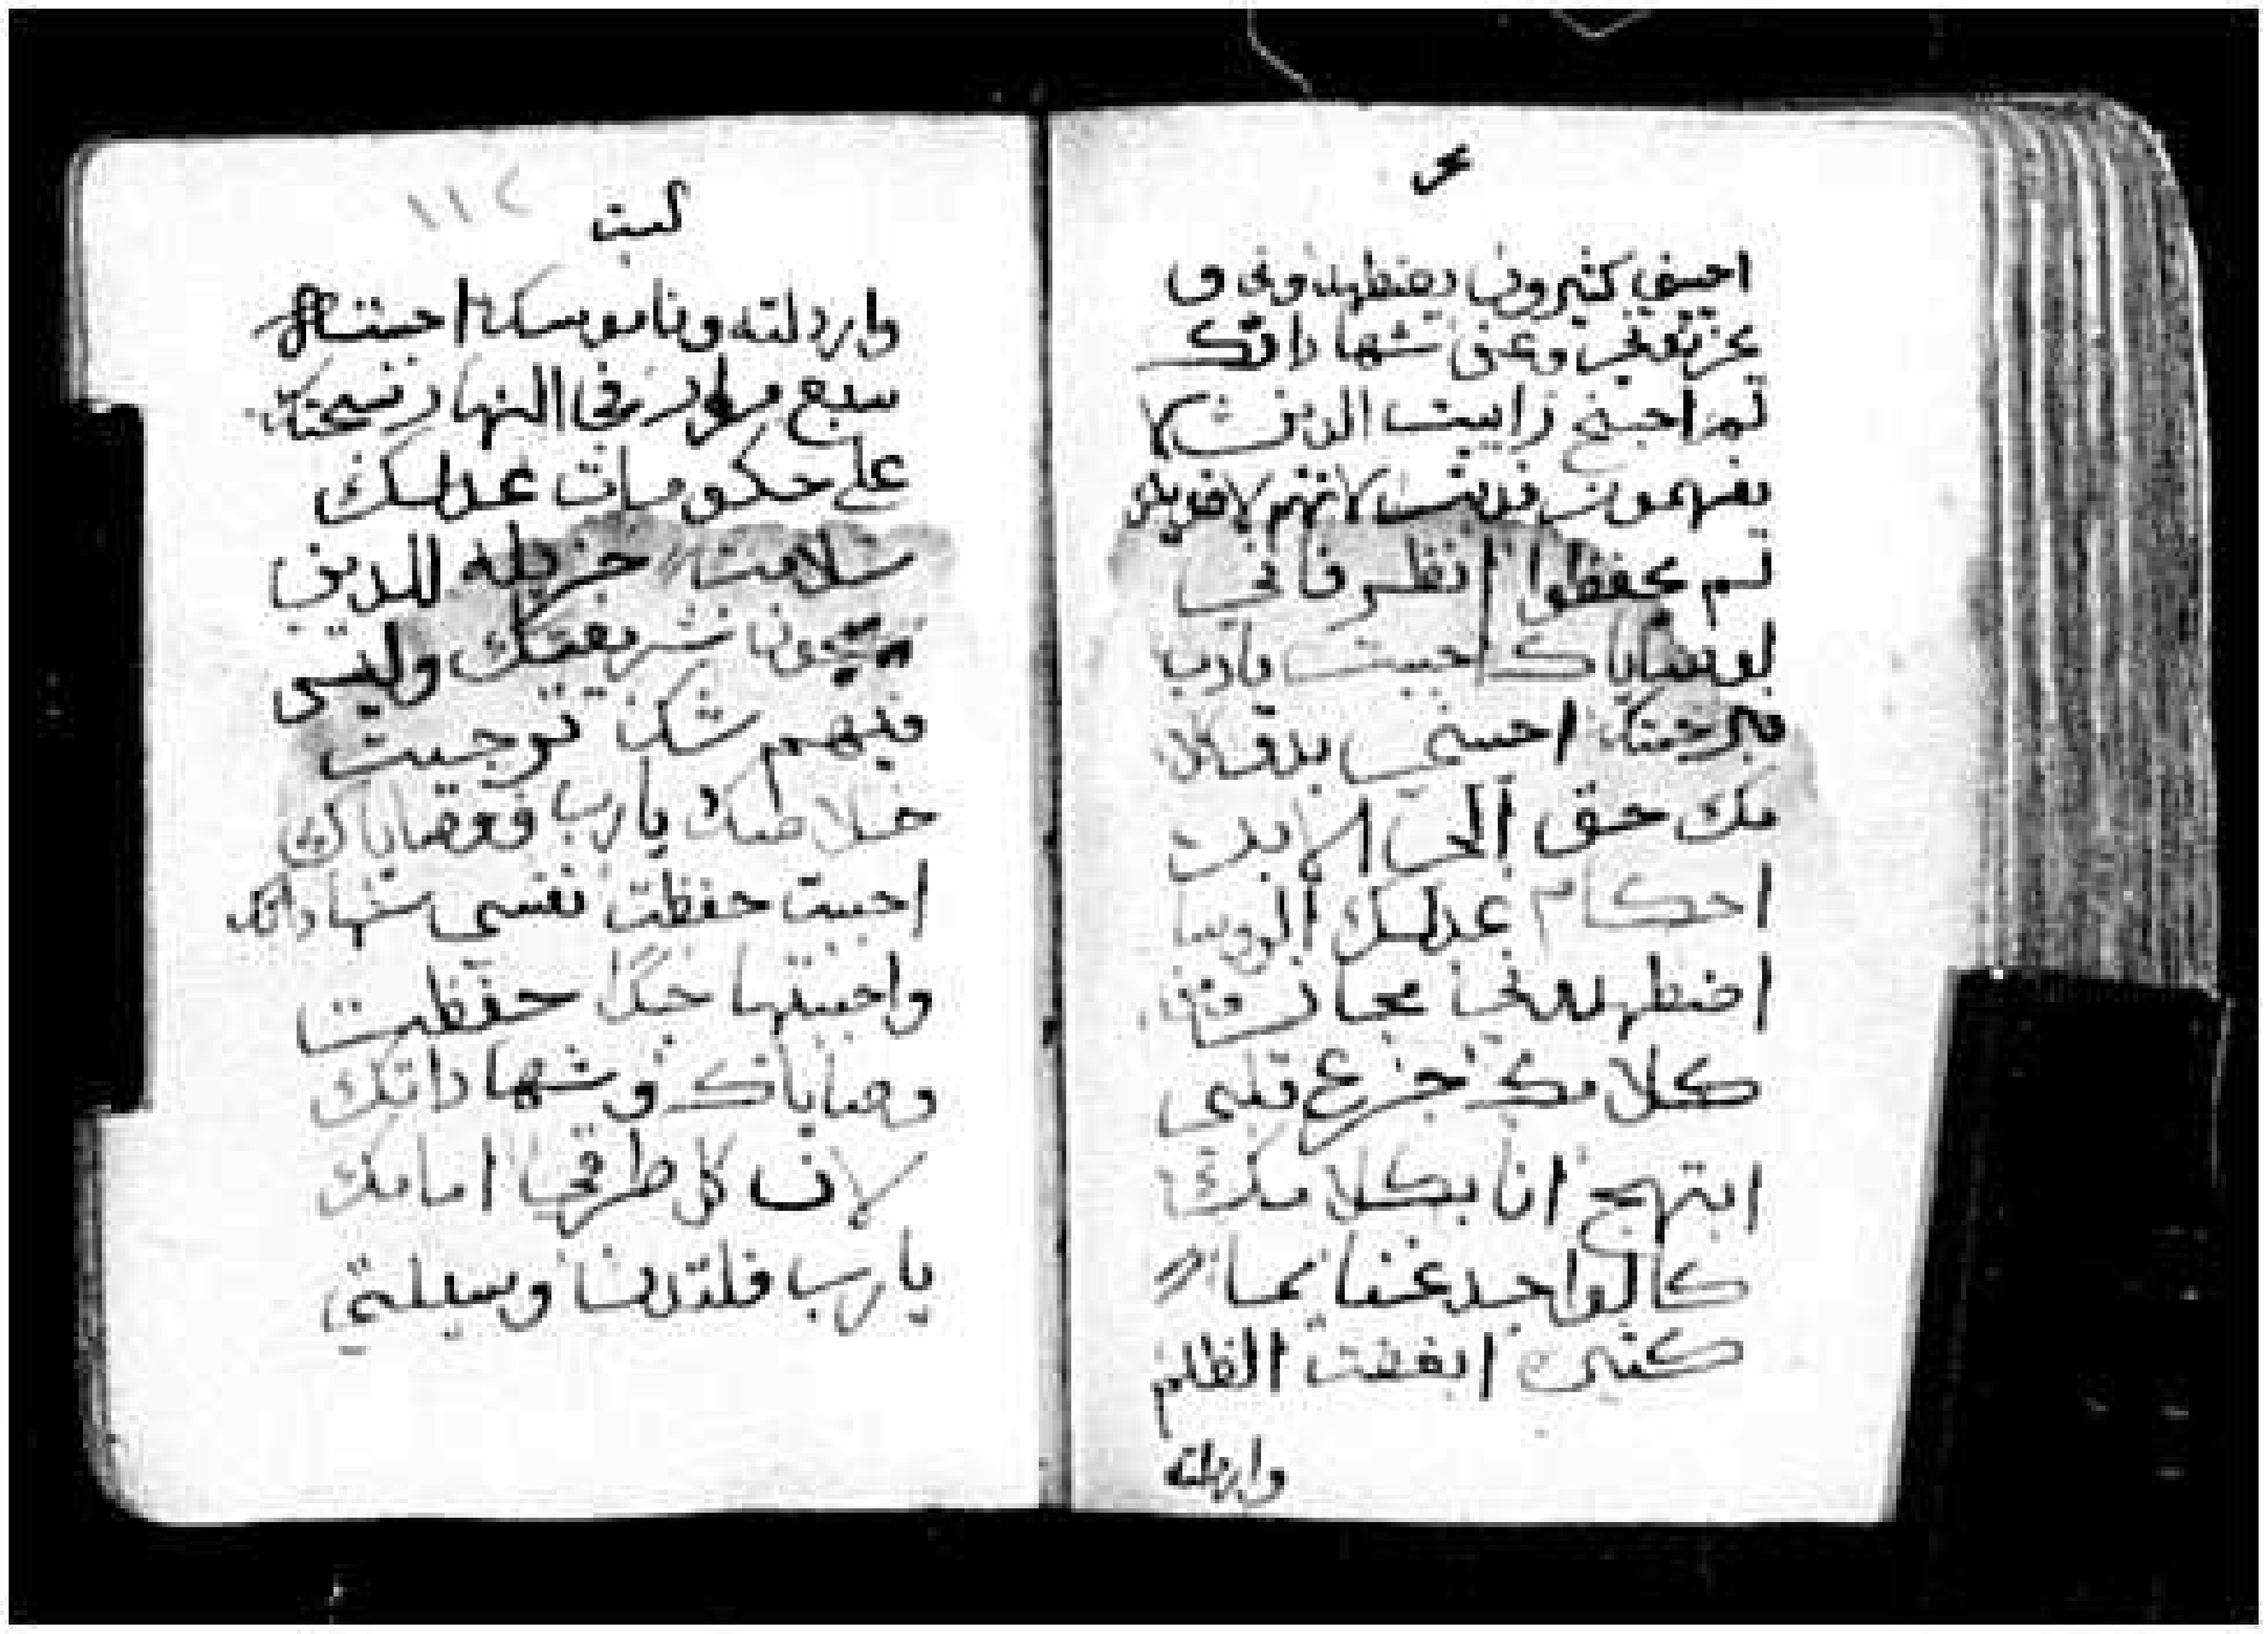 احيني كثيرون يضطهدوني و
يحزنوني وعن شهاداتك
لم احيد رايت الذين لا
يفهمون فذبت لانهم لاقوالك
لم يحفظوا انظر فاني
لوصاياك احببت يارب
فبرحمتك احيني بدو كلا
مك حق الى الابد
احكام عدلك الروسا
اضطهدوني مجانا ومن
كلامك جزع قلبي
ابتهج انا بكلامك
كالواجد غنايما
كثيره ابغضت الظلم
وارذلته
١١٢
وارذلته وناموسك احببت
سبع مرار في النهار سبحتك
على حكومات عدلك
سلامه جزيله للذين
يحبون شريعتك وليس
فيهم شك توجيت
خلاصك يارب ووصاياك
احببت حفظت نفسي شهاداتك
واحببتها جدا حفظت
وصاياك وشهاداتك
لان كل طرقي امامك
يارب فلتدن وسيلتي